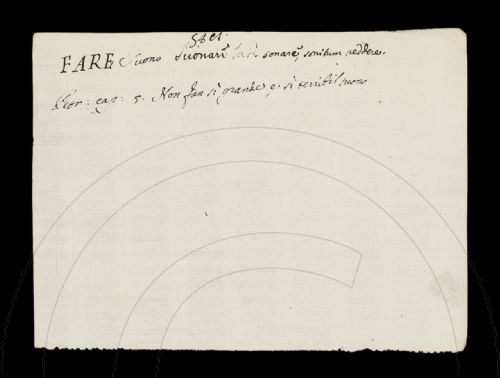 FARE Suono Suonare lat: sonare, sonitum reddere.
Petr: cap: 5. Non fan sì grande e sì terribil suono